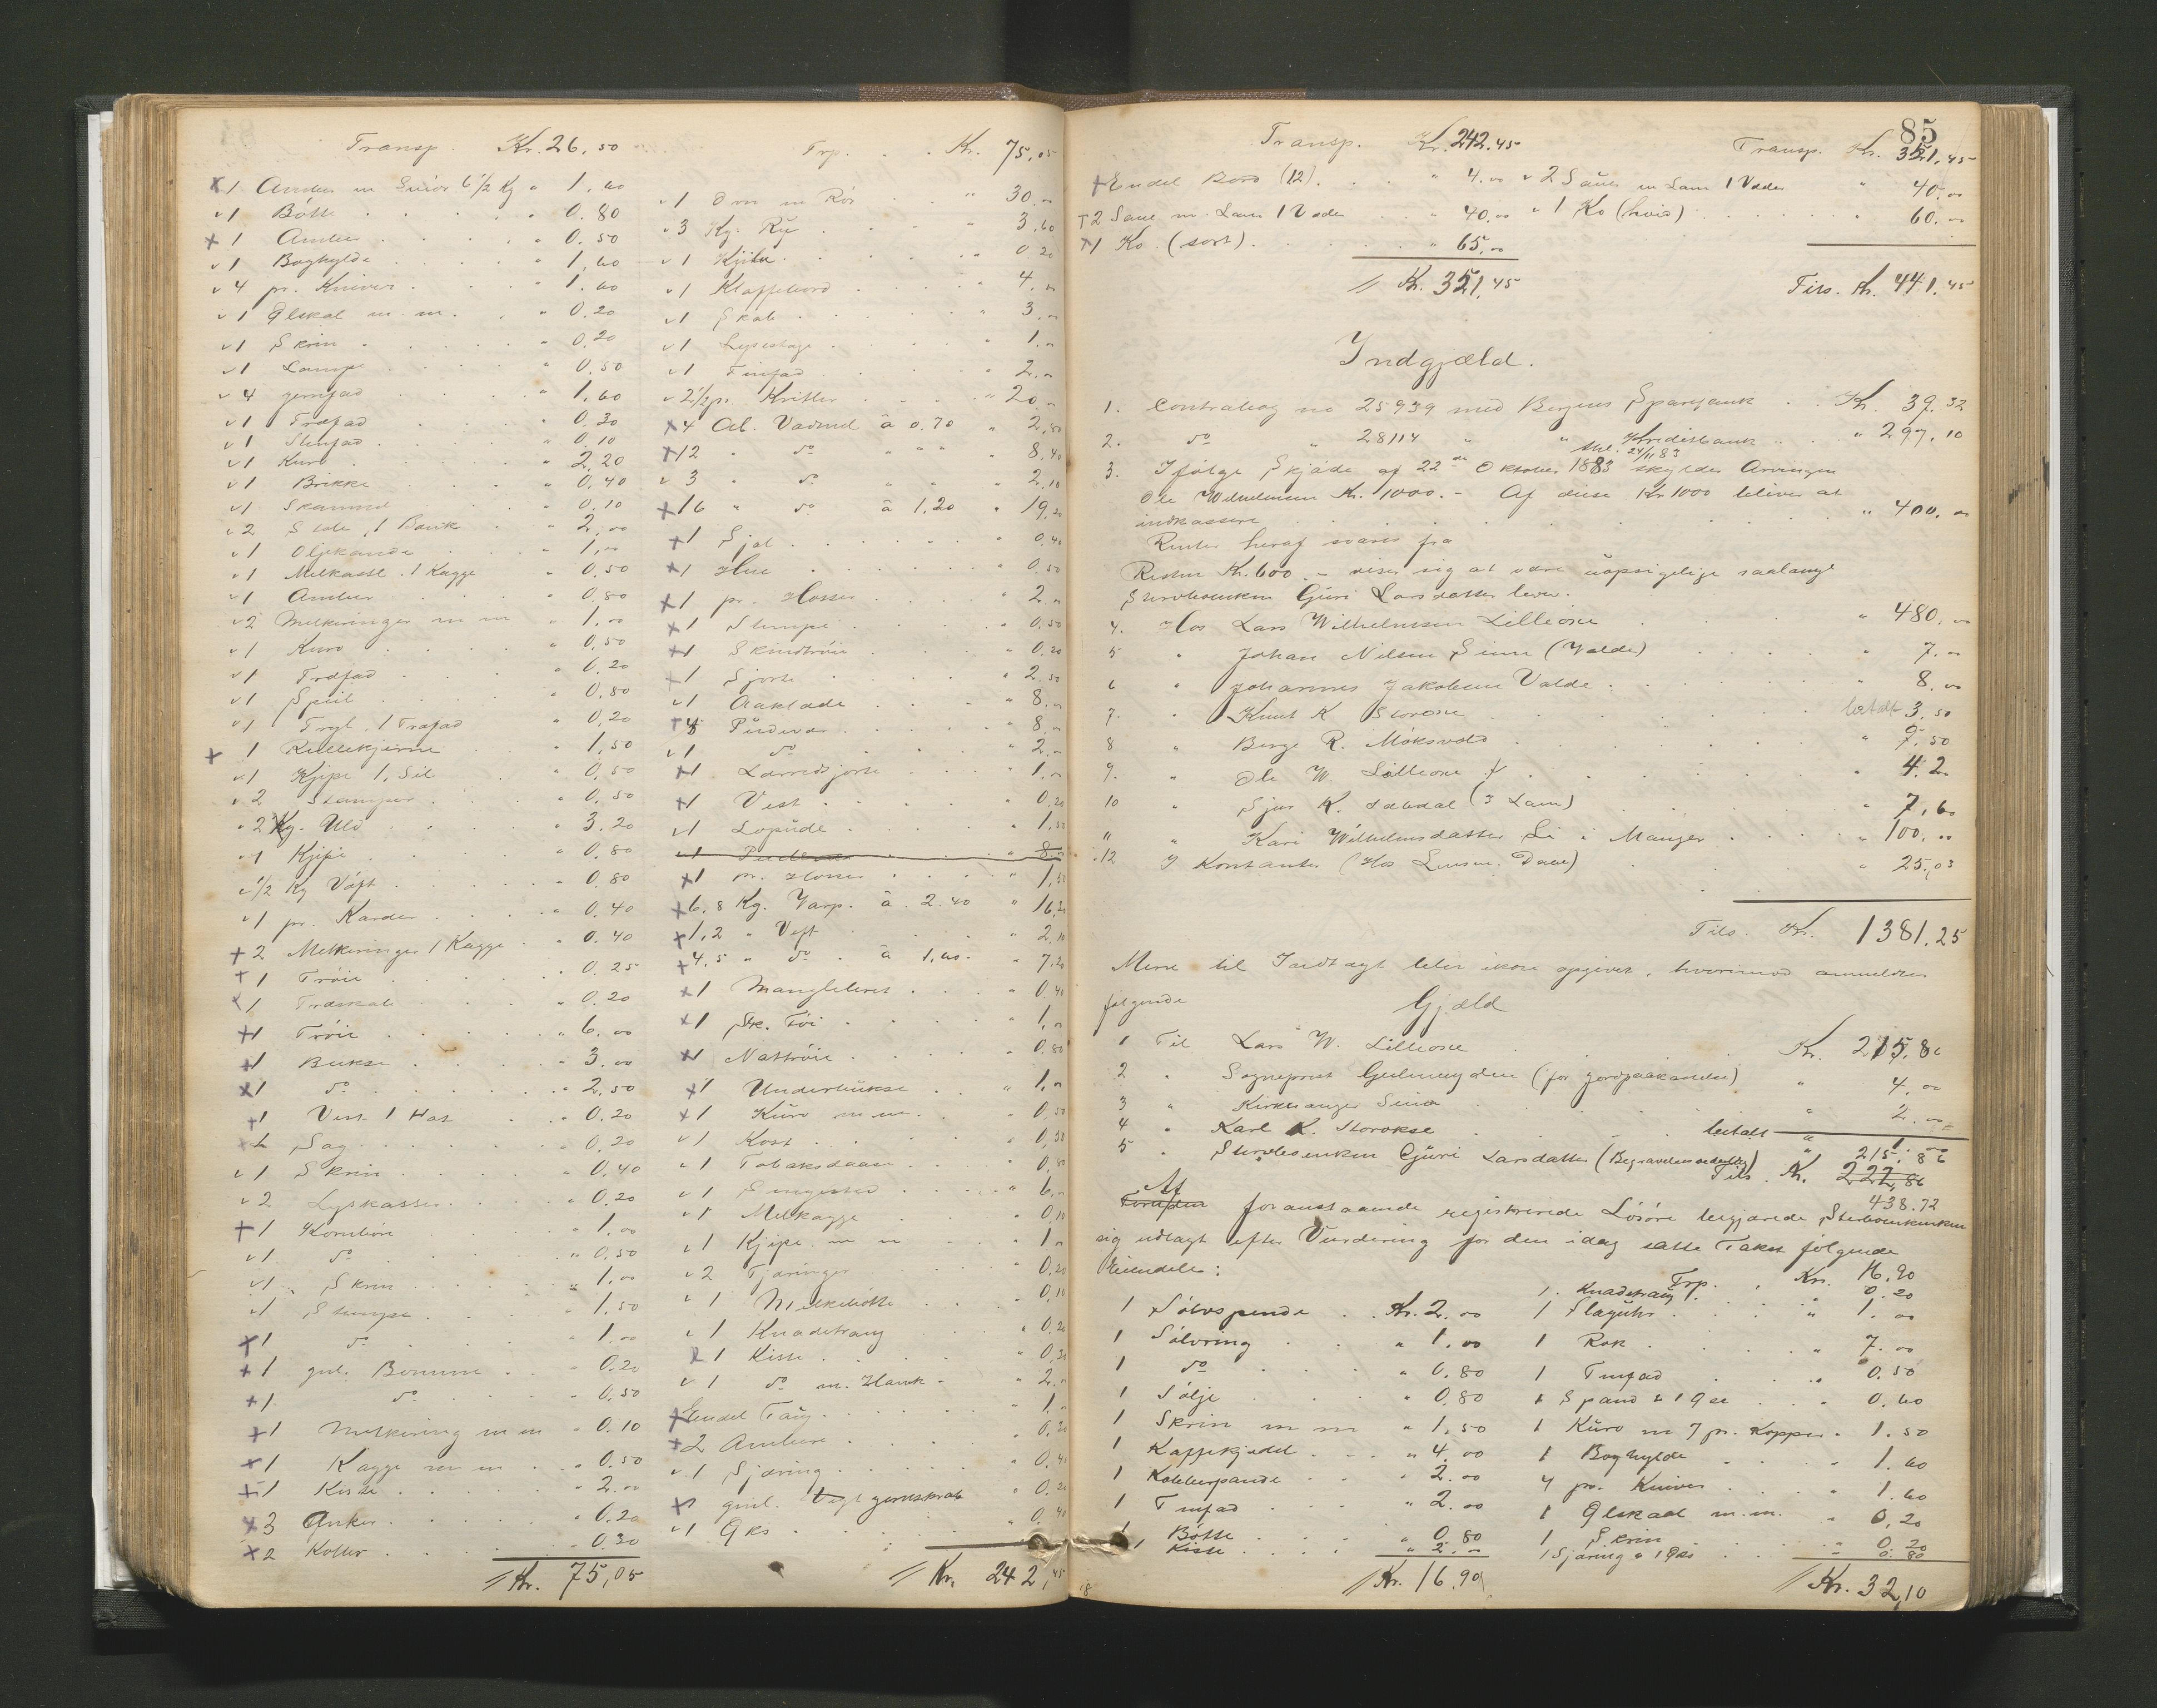 Transp. Kr. 26.50
1 Ambar m Smör 6 1/2 Kg " 1.60
1 Bötte " 0.80
1 Ambar " 0.50
1 Boghylde " 1.60
4 pr. Kniver " 1.60
1 Ølskal m m. " 0.20
1 Skrin " 0.20
1 Lampe " 0.50
4 jernfad " 1.60
1 Træfad " 0.30
1 Stenfad " 0.10
1 Kurv " 2.20
1 Brikke " 0.40
1 Skammel 0.10
2 Stole, 1 Bænk " 2.00
1 Oljekande " 1.00
1 Melkasse. 1 Kagge " 0.50
1 Ambar " 0.80
2 Melkeringer m m " 1.00
1 Kurv " 0.50
1 Træfad " 0.20
1 Speil " 0.80
1 Trygl. 1 Træfad " 0.20
1 Rullekjerne " 1.50
1 Kjipe 1. Sil " 0.50
2 Stamper " 0.50
2 Kg. Uld " 3.20
1 Kjipe " 0.80
1/2 Kg Vöft " 0.80
1 pr. Karder " 0.40
2 Melkeringer 1 Kagge " 0.40
1 Tröie " 0.25
1 Træskab " 0.20
1 Tröie " 6.00
1 Bukse " 3.00
1 do " 2.50
1 Vest 1 Hat " 0.20
1 Sag " 0.20
1 Skrin " 0.40
2 Lyskasser " 0.20
1 Kornböre " 1.00
1 do " 0.50
1 Skrin " 1.00
1 Stumpe " 1.50
1 do " 1.00
1 gml. Bomme " 0.20
1 do " 0.50
1 Melkering m m " 0.10
1 Kagge m m " 0.50
1 Kiste " 2.00
3 Anker " 0.20
2 Koller 0.30
Kr. 75,05
Trp. Kr. 75.05
1 Ovn m Rör " 30.00
3 Kg. Ry " 3.60
1 Kjile " 0.20
1 Klappebord " 4.00
1 Skab " 3.00
1 Lysestage " 1.00
1 Tinfad " 2.00
2 1/2 pr. Kritter " 20.00
4 Al. Vadmel à 0.70 " 2.80
12 " do " " " 8.40
3 " do " " " 2.10
16 " do à 1.20 " 19.20
1 Sjal " 0.40
1 Hue " 0.50
1 pr. Hoser " 2.00
1 Stumpe " 0.50
1 Skindtröie " 0.20
1 Sjorte " 2.50
1 Aaklæde " 8.00
4 Pudevar " 8.00
1 do " 2.00
1 Lærredsjorte " 1.00
1 Vest " 0.20
1 Lopude " 1.50
1 " 8.00
1 pr. Hoser " 1.50
6.8 Kg. Varp. à 2.40 " 16.30
1,2 " Veft " 2.10
4.5 " do à 1.60 " 7,20
1 Manglebret " 0.40
1 Stk. Töi " 1.00
1 Nattröie " 0.80
1 Underbukse " 1.00
1 Kurv m m. " 0.50
1 Kost " 0.50
1 Tobaksdaase " 0.50
1 Sengested " 6.00
1 Melkagge " 0.10
1 Kjipe m m " 1.00
2 Tjæringer " 0.20
1 Melkebötte " 0.10
1 Knadetraug " 0.20
1 Kiste " 0.30
1 do m. Hank " 2.00
Endel Taug " 1.00
2 Ambare " 0.30
1 Sjæring " 0.40
gml. jernskrab " 0.20
1 Øks " 0.40
Kr. 242,45
85
Transp. Kr. 242.45
Endel Bord (12) " 4.00
2 Saue m. Lam 1 Væder " 40.00
1 Ko. (sort) " 65.00
Kr. 351.45
Transp. Kr. 351.45
2 Sauer m Lam 1 Væder " 40.00
1 Ko (hvid) " 60.00
Tils. Kr. 441.45
Indgjæld.
1. Contrabog no 25939 med Bergens Sparebank Kr. 39.32
2. do " 28114 " " Kreditbank " 297.10
3. Ifölge Skjöde af 22de Oktober 1883 skylder Arvingen
Ole Wilhelmsen Kr. 1000.- Af disse Kr 1000 bliver at
indkassere " 400.00
Renter heraf svares fra
Resten Kr. 600.- viser sig at være uopsigelige saalænge
Stervboenken Guri Larsdatter lever.
4. Hos Lars Wilhelmsen Lilleöxe " 480.00
5 " Johan Nilsen Sim (Valde) " 7.00
6 " Johannes Jakobsen Valde " 8.00
7. " Knut K Storöxe betalt 3.50
8 " Berge R. Moksvold " 9.50
9. " Ole W. Lilleöxe " 4.20
10 " Sjur K. (3 Lam) " 7.60
11 " Kari Wilhelmsdatter Li i Manger " 100.00
12 I Kontanter (Hos Lensm. Dave) " 25.03
Tils. Kr. 1381.25
Mere til Indtægt blev ikke opgivet, hvorimod anmeldtes
fölgende Gjæld
1 Til Lars W. Lilleöxe Kr. 215.86
2 " Sogneprest (for jordpaakastelse) " 4.00
3 " Kirkesanger " 2.00
4 " Karl K. Storoxe betalt "
5 " Stervboenken Guri Larsdatter (Begravelses) " 215.86
Tils. Kr. 227,86
438.72
Af foranstaaende registrerede Lösöre begjærede Stervboenken
sig udlagt efter Vurdering for den idag satte Takst fölgende
Eiendele:
1 Sölvspende Kr. 2.00
1 Sölvring " 1.00
1 do " 0.80
1 Sölje " 0.80
1 Skrin m m " 1.50
1 Kaffekjedel " 4.00
1 Kobberpande " 2.00
1 Tinfad " 2.00
1 Bötte " 0.80
1 Kiste " 2.00
Kr. 16.90
Trp. Kr. 16.90
1 Knadetraug " 0.20
1 Slaguhr " 1.00
1 Rok " 7.00
1 Tinfad " 0.50
1 Spand " 0.60
1 Kurv m 7 pr. Kopper " 1.50
1 Boghylde " 1.60
4 pr. Kniver " 1.60
1 Ølskaal m.m. " 0.20
1 Skrin " 0.20
1 Sjæring & 1 Øks " 0.80
Kr. 32,10